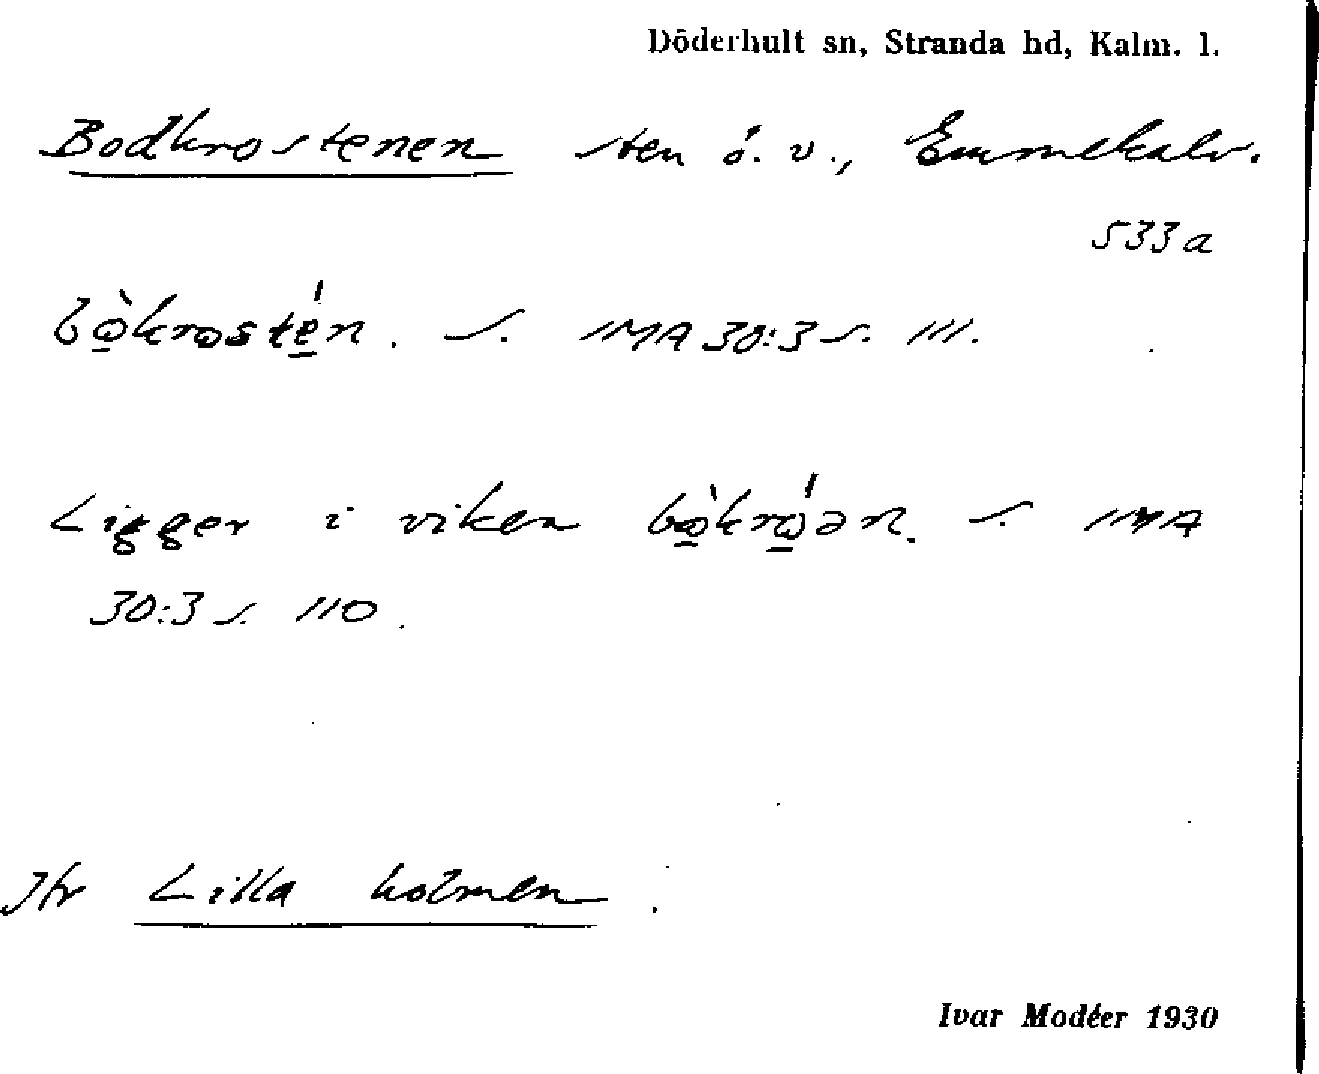 Döderhult sn, Stranda hd, Kalm. l.
Bodkrostenen sten ö. v., Emmekalv.
533a
bò̱krosté̱n. S. IMA 30:3 s. 111.
Ligger i viken bò̱kró̱ən. S. IMA
30:3 s. 110.
Jfr Lilla holmen.
Ivar Modéer 1930